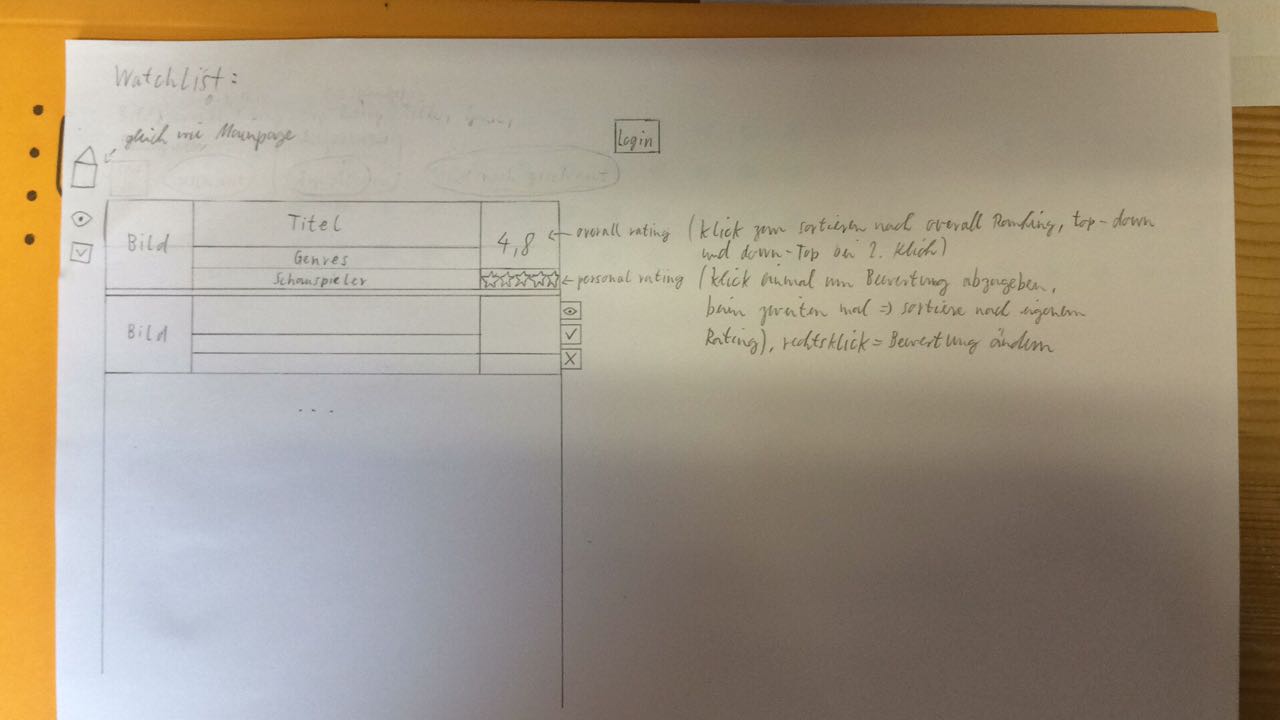 Watchlist:
gleich wie Mainpage
Login
Bild
Titel
Genres
Schauspieler
4,8
overall rating (klick zum sortieren nach overall Ranking, top-down
und down-Top bei 2. klick)
personal rating (klick einmal um Bewertung abzugeben,
beim zweiten mal => sortiere nach eigenem
Rating), rechtsklick = Bewertung ändern
Bild
...